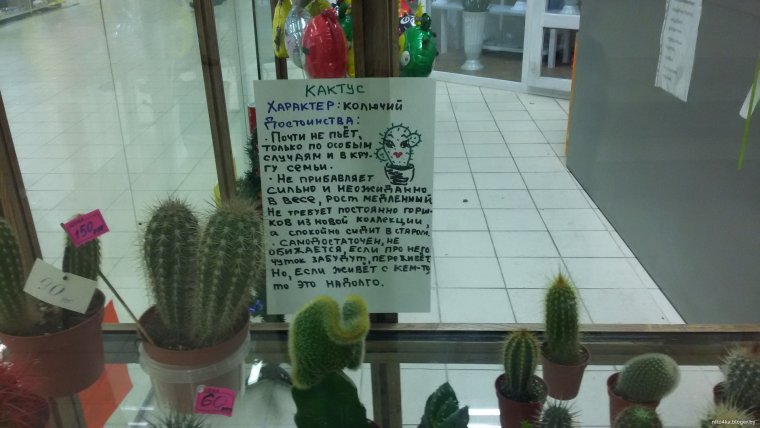 КАКТУС
ХАРАКТЕР: КОЛЮЧИЙ
ДОСТОИНСТВА:
· ПОЧТИ НЕ ПЬЁТ,
ТОЛЬКО ПО ОСОБЫМ
СЛУЧАЯМ И В КРУ-
ГУ СЕМЬИ.
· НЕ ПРИБАВЛЯЕТ
СИЛЬНО И НЕОЖИДАННО
В ВЕСЕ, РОСТ МЕДЛЕННЫЙ
НЕ ТРЕБУЕТ ПОСТОЯННО ГОРШ-
КОВ ИЗ НОВОЙ КОЛЛЕКЦИИ,
А СПОКОЙНО СИДИТ В СТАРОМ.
· САМОДОСТАТОЧЕН, НЕ
ОБИЖАЕТСЯ, ЕСЛИ ПРО НЕГО
ЧУТОК ЗАБУДУТ, ПЕРЕЖИВЁТ.
НО, ЕСЛИ ЖИВЁТ С КЕМ-ТО
ТО ЭТО НАДОЛГО.
150
90
60
nito4ka.bloger.by